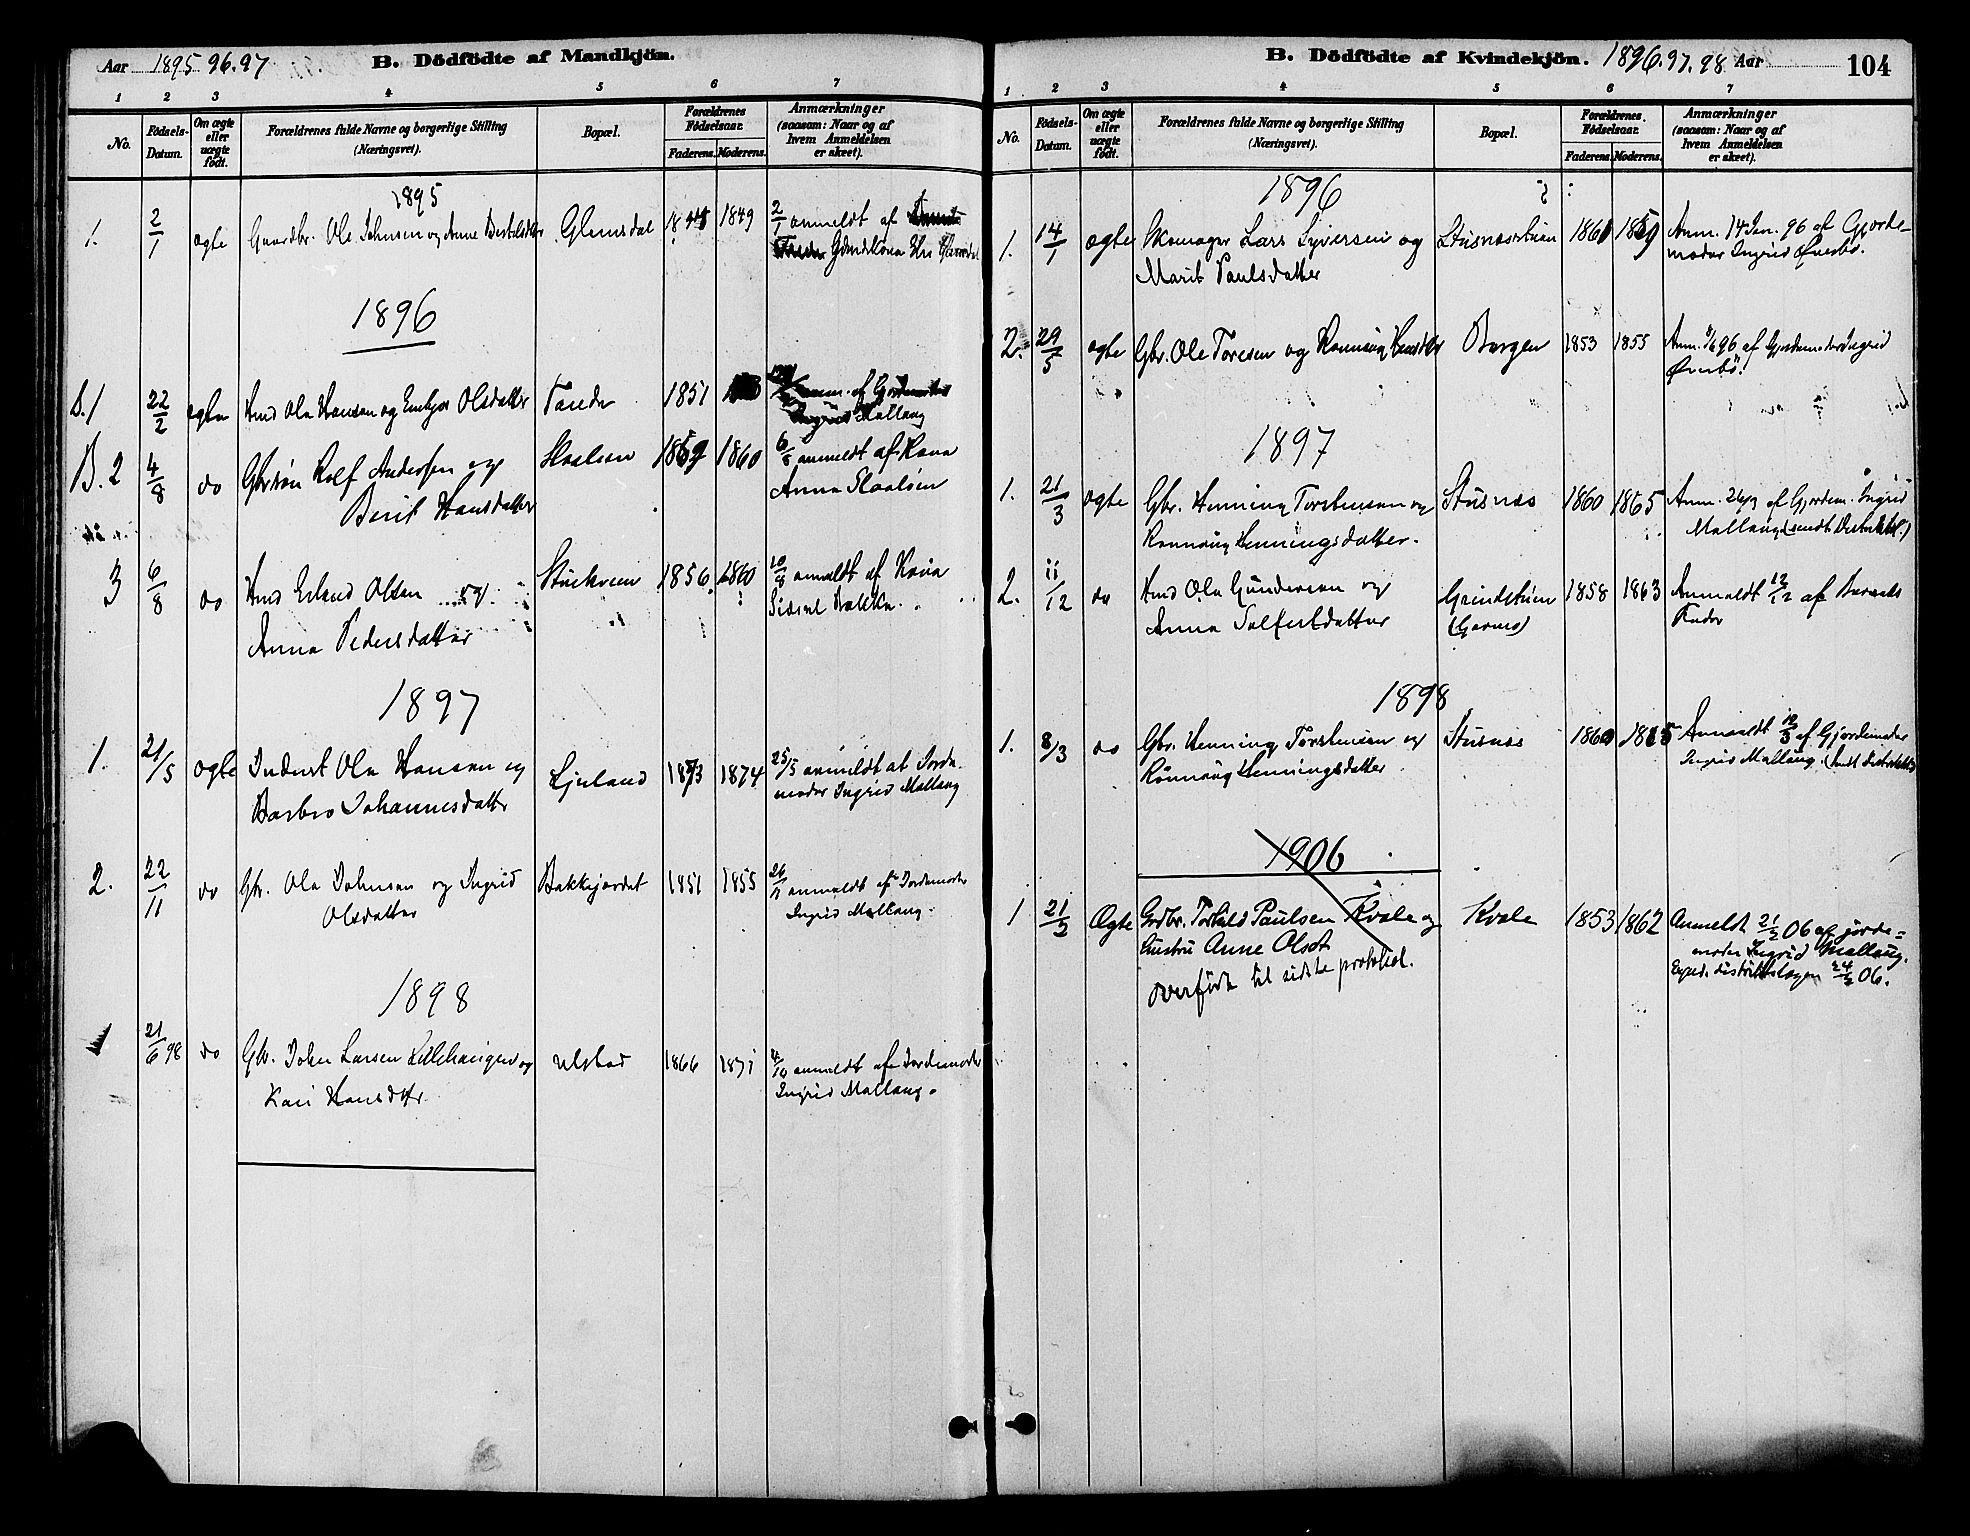 Aar 1895 96.97 B. Dödfödte af Mandkjön.
1 2 3 4 5 6 7
No. Födsels-Datum. Om ægte eller uægte födt. Forældrenes fulde Navne og borgerlige Stilling (Næringsvei). Bopæl. Forældrenes Födselsaar. Faderens. Moderens. Anmærkninger (saasom: Naar og af hvem Anmeldelsen er skeet).
1895
1. 2/1 ægte Gaardbr. Ole Johnsen og Anne Glemsdal 1849 2/1 anmeldt af
1896
B.1 22/2 ægte Hmd Ola Hansen og Olsdatter 1851 anm. af
Ingrid Mallang
B.2 4/8 do Rolf Andersen og 1860 6/8 anmeldt af Kona
Berit Hansdatter Anna Skaalsen
3 6/8 do Hmd Erland Olsen og 1856 1860 10/8 anmeldt af Kona
Anna Pedersdatter
1897
1. 21/5 ægte Inderst Ola Hansen og Ljuland 1873 1874 25/5 anmeldt af Jorde-
Barbro Johannesdatter moder Ingrid Mallang
2. 22/11 do Gbr. Ola Johnsen og Ingrid Bakkejordet 1851 1855 anmeldt af Jordemoder
Olsdatter Ingrid Mallang.
1898
1 21/6 98 do Gbr. John Larsen Lillehaugen og Ulstad 1866 1871 anmeldt af Jordemoder
Kari Hansdtr. Ingrid Mallang.
B. Dödfödte af Kvindekjön. 1896.97.98 Aar 104
1 2 3 4 5 6 7
No. Födsels-Datum. Om ægte eller uægte födt. Forældrenes fulde Navne og borgerlige Stilling (Næringsvei). Bopæl. Forældrenes Födselsaar. Faderens. Moderens. Anmærkninger (saasom: Naar og af hvem Anmeldelsen er skeet).
1896
1. 14/1 ægte Skomager Lars Syversen og 1861 1859 Anm. 14 Jan. 96 af Gjorde-
Marit Paulsdatter moder Ingrid Øverbø.
2. 29/5 ægte Gbr. Ole Toresen og Bergen 1853 1855 Anm. 96 af Gjordemoder Ingrid
Øverbø.
1897
1. 21/3 ægte Gbr. Henning Torstensen og Stusnæs 1860 1865 Anm. af Gjordem. Ingrid
Rønnaug Henningsdatter. Mallang
2. 11/12 do Hmd Ola Gundersen og Grindstuen 1858 1863 Anmeldt 12/12 af Barnets
Anna Fader
1898
1. 8/3 do Gbr. Henning Torstensen og Stusnæs 1860 1865 Anmeldt af Gjordemoder
Rønnaug Henningsdatter Ingrid Mallang.
1906
1 21/2 Ægte Grdbr. Torkild Paulsen Kvale og Kvale 1853 1862 Anmeldt 21/2 06 af jorde-
hustru Anne Olsdt. moder Ingrid Mallang.
overført til sidste protokol. 24/2 06.